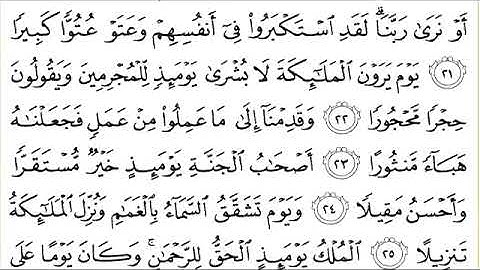 أَوْ نَرَىٰ رَبَّنَا ۗ لَقَدِ اسْتَكْبَرُوا فِي أَنْفُسِهِمْ وَعَتَوْ عُتُوًّا كَبِيرًا
﴿٢١﴾ يَوْمَ يَرَوْنَ الْمَلَائِكَةَ لَا بُشْرَىٰ يَوْمَئِذٍ لِلْمُجْرِمِينَ وَيَقُولُونَ
حِجْرًا مَحْجُورًا ﴿٢٢﴾ وَقَدِمْنَا إِلَىٰ مَا عَمِلُوا مِنْ عَمَلٍ فَجَعَلْنَاهُ
هَبَاءً مَنْثُورًا ﴿٢٣﴾ أَصْحَابُ الْجَنَّةِ يَوْمَئِذٍ خَيْرٌ مُسْتَقَرًّا
وَأَحْسَنُ مَقِيلًا ﴿٢٤﴾ وَيَوْمَ تَشَقَّقُ السَّمَاءُ بِالْغَمَامِ وَنُزِّلَ الْمَلَائِكَةُ
تَنْزِيلًا ﴿٢٥﴾ الْمُلْكُ يَوْمَئِذٍ الْحَقُّ لِلرَّحْمَٰنِ ۚ وَكَانَ يَوْمًا عَلَى